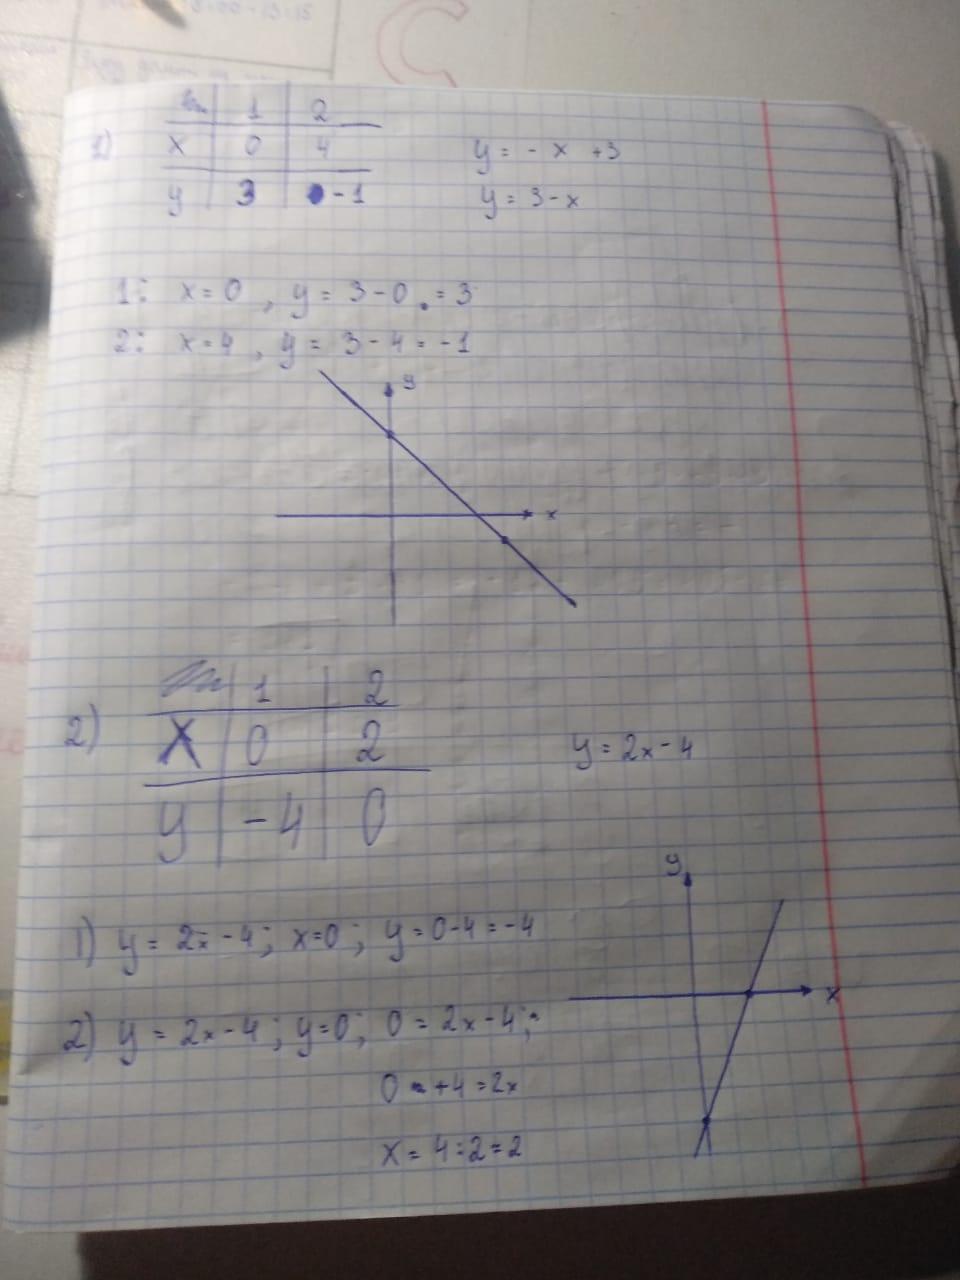 1 2
1) x 0 4 y = - x + 3
y 3 -1 y = 3 - x
1: x = 0 , y = 3 - 0 . = 3
2: x = 4 , y = 3 - 4 = -1
y
x
1 2
2) X 0 2 y = 2x - 4
y -4 0
y
1) y = 2x - 4; x=0; y = 0-4 = -4
x
2) y = 2x - 4; y=0; 0 = 2x - 4;
0 + 4 = 2x
x = 4 : 2 = 2